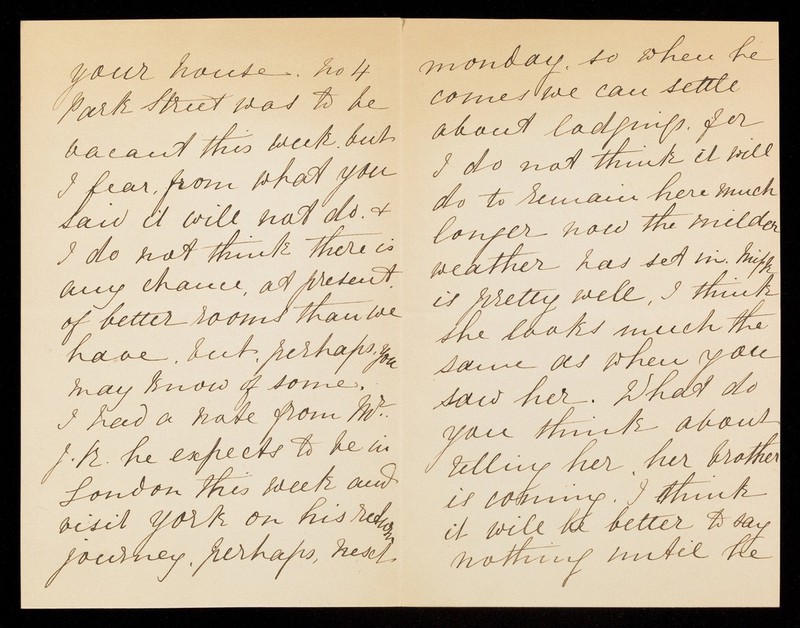 your house. no 4
Park Street was to be
vacant this week, but
I fear, from what you
said it will not do. &
I do not think there is
any chance, at present,
of better rooms than we
have, but, perhaps, you
may know of some.
I had a note from Mr.
J.K. he expects to be in
London this week and
visit York on his return
journey, perhaps, next
monday, so when he
comes we can settle
about lodgings. for
I do not think it will
do to remain here much
longer now the milder
weather has set in. Miss K
is pretty well, I think
she looks much the
same as when you
saw her. What do
you think about
telling her, her brother
is coming. I think
it will be better to say
nothing until he